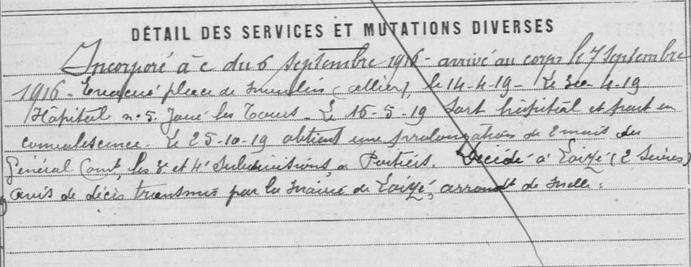 DÉTAIL DES SERVICES ET MUTATIONS DIVERSES
Incorporé à c du 6 Septembre 1916 - arrivé au corps le 7 Septembre
1916 - Evacué place de Moulins (Allier), le 14-4-19 - Le 30-4-19
Hôpital n° 5. Joué les Tours - Le 16-5-19 Sort hôpital et part en
convalescence. Le 25-10-19 obtient une prolongation de 2 mois du
Général Comt les 3e et 4e Subdivisions, à Poitiers. Décédé à Loizé (2 Sèvres)
avis de décès transmis par la mairie de Loizé, arrondt de Melle.